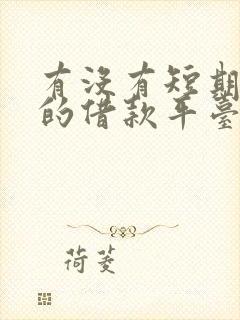 有没有短期
的借款平臺
荷菱